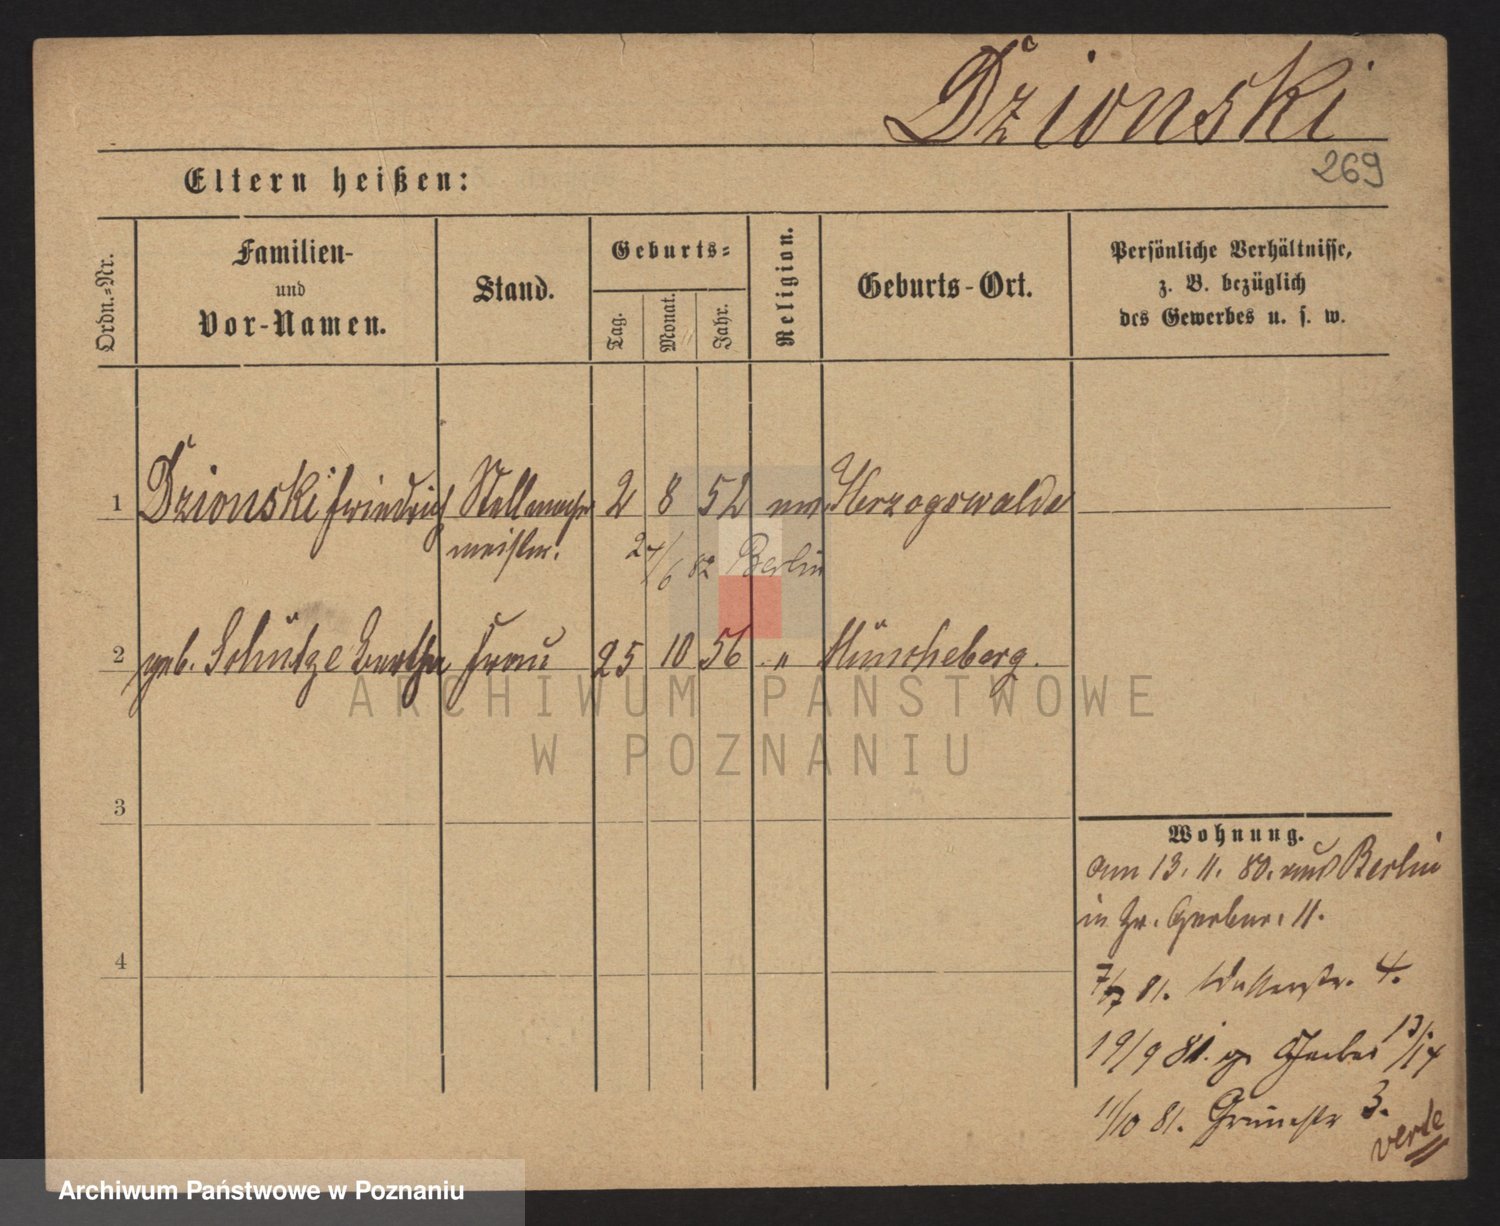 Dzionski
269
Eltern heißen:
Ordn.-Nr.
Familien-
und
Vor-Namen.
Stand.
Geburts-
Tag.
Monat.
Jahr.
Religion.
Geburts-Ort.
Persönliche Verhältnisse,
z. B. bezüglich
des Gewerbes u. s. w.
1 Dzionski Friedrich Stellmacher 2 8 52 Herzogswalde
meister.
27/6 82 Berlin
2 geb. Schütze Bertha Frau 25 10 56 " Müncheberg.
3
4
Wohnung.
am 13. 11. 80. aus Berlin
in Gr. Gerber. 11.
7/7 81. Wasserstr. 4.
19/9 81. gr Gerber 13/14
11/10 81. Grünestr 3.
verte
ARCHIWUM PAŃSTWOWE
W POZNANIU
Archiwum Państwowe w Poznaniu